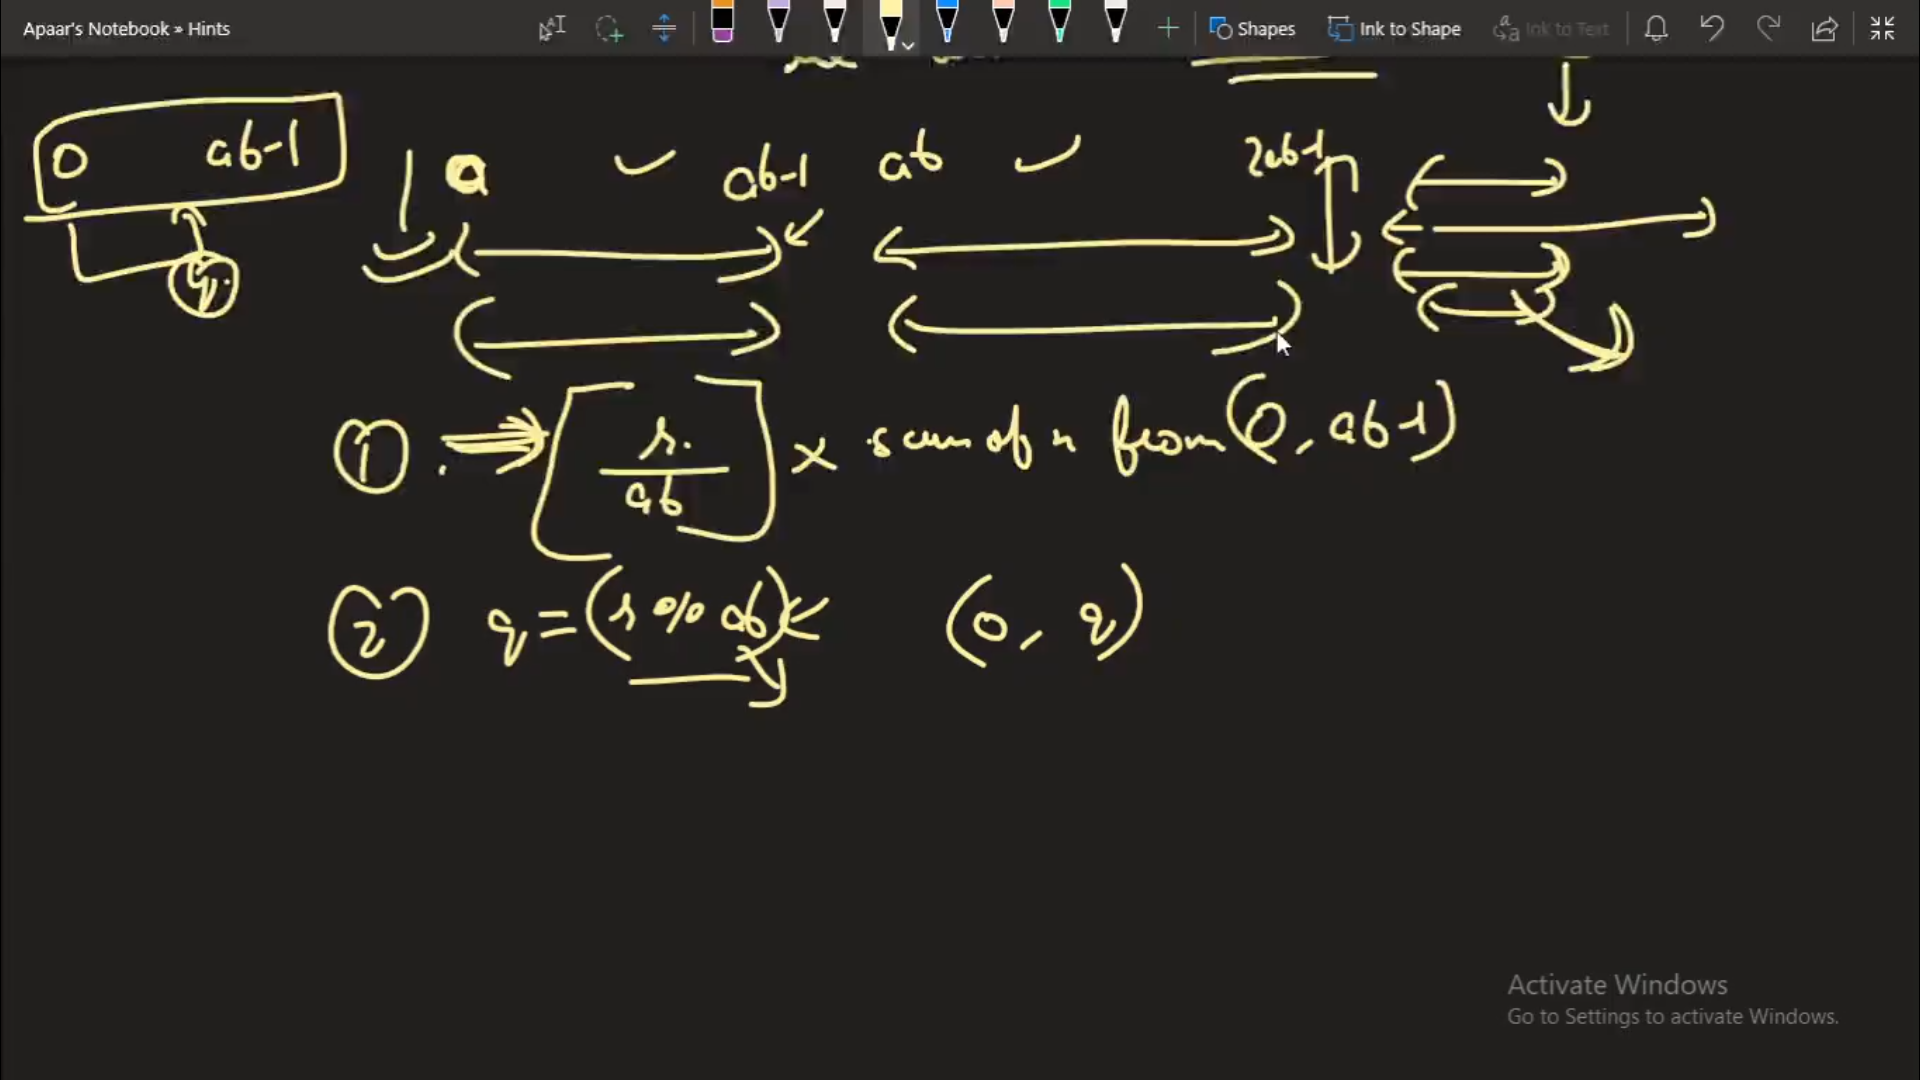 Apaar's Notebook » Hints
Shapes Ink to Shape Ink to Text
0 ab-1
a ab-1 ab 2ab-1
q
① [r/ab] × sum of n from (0, ab-1)
② q = (r % ab) (0, q)
Activate Windows
Go to Settings to activate Windows.